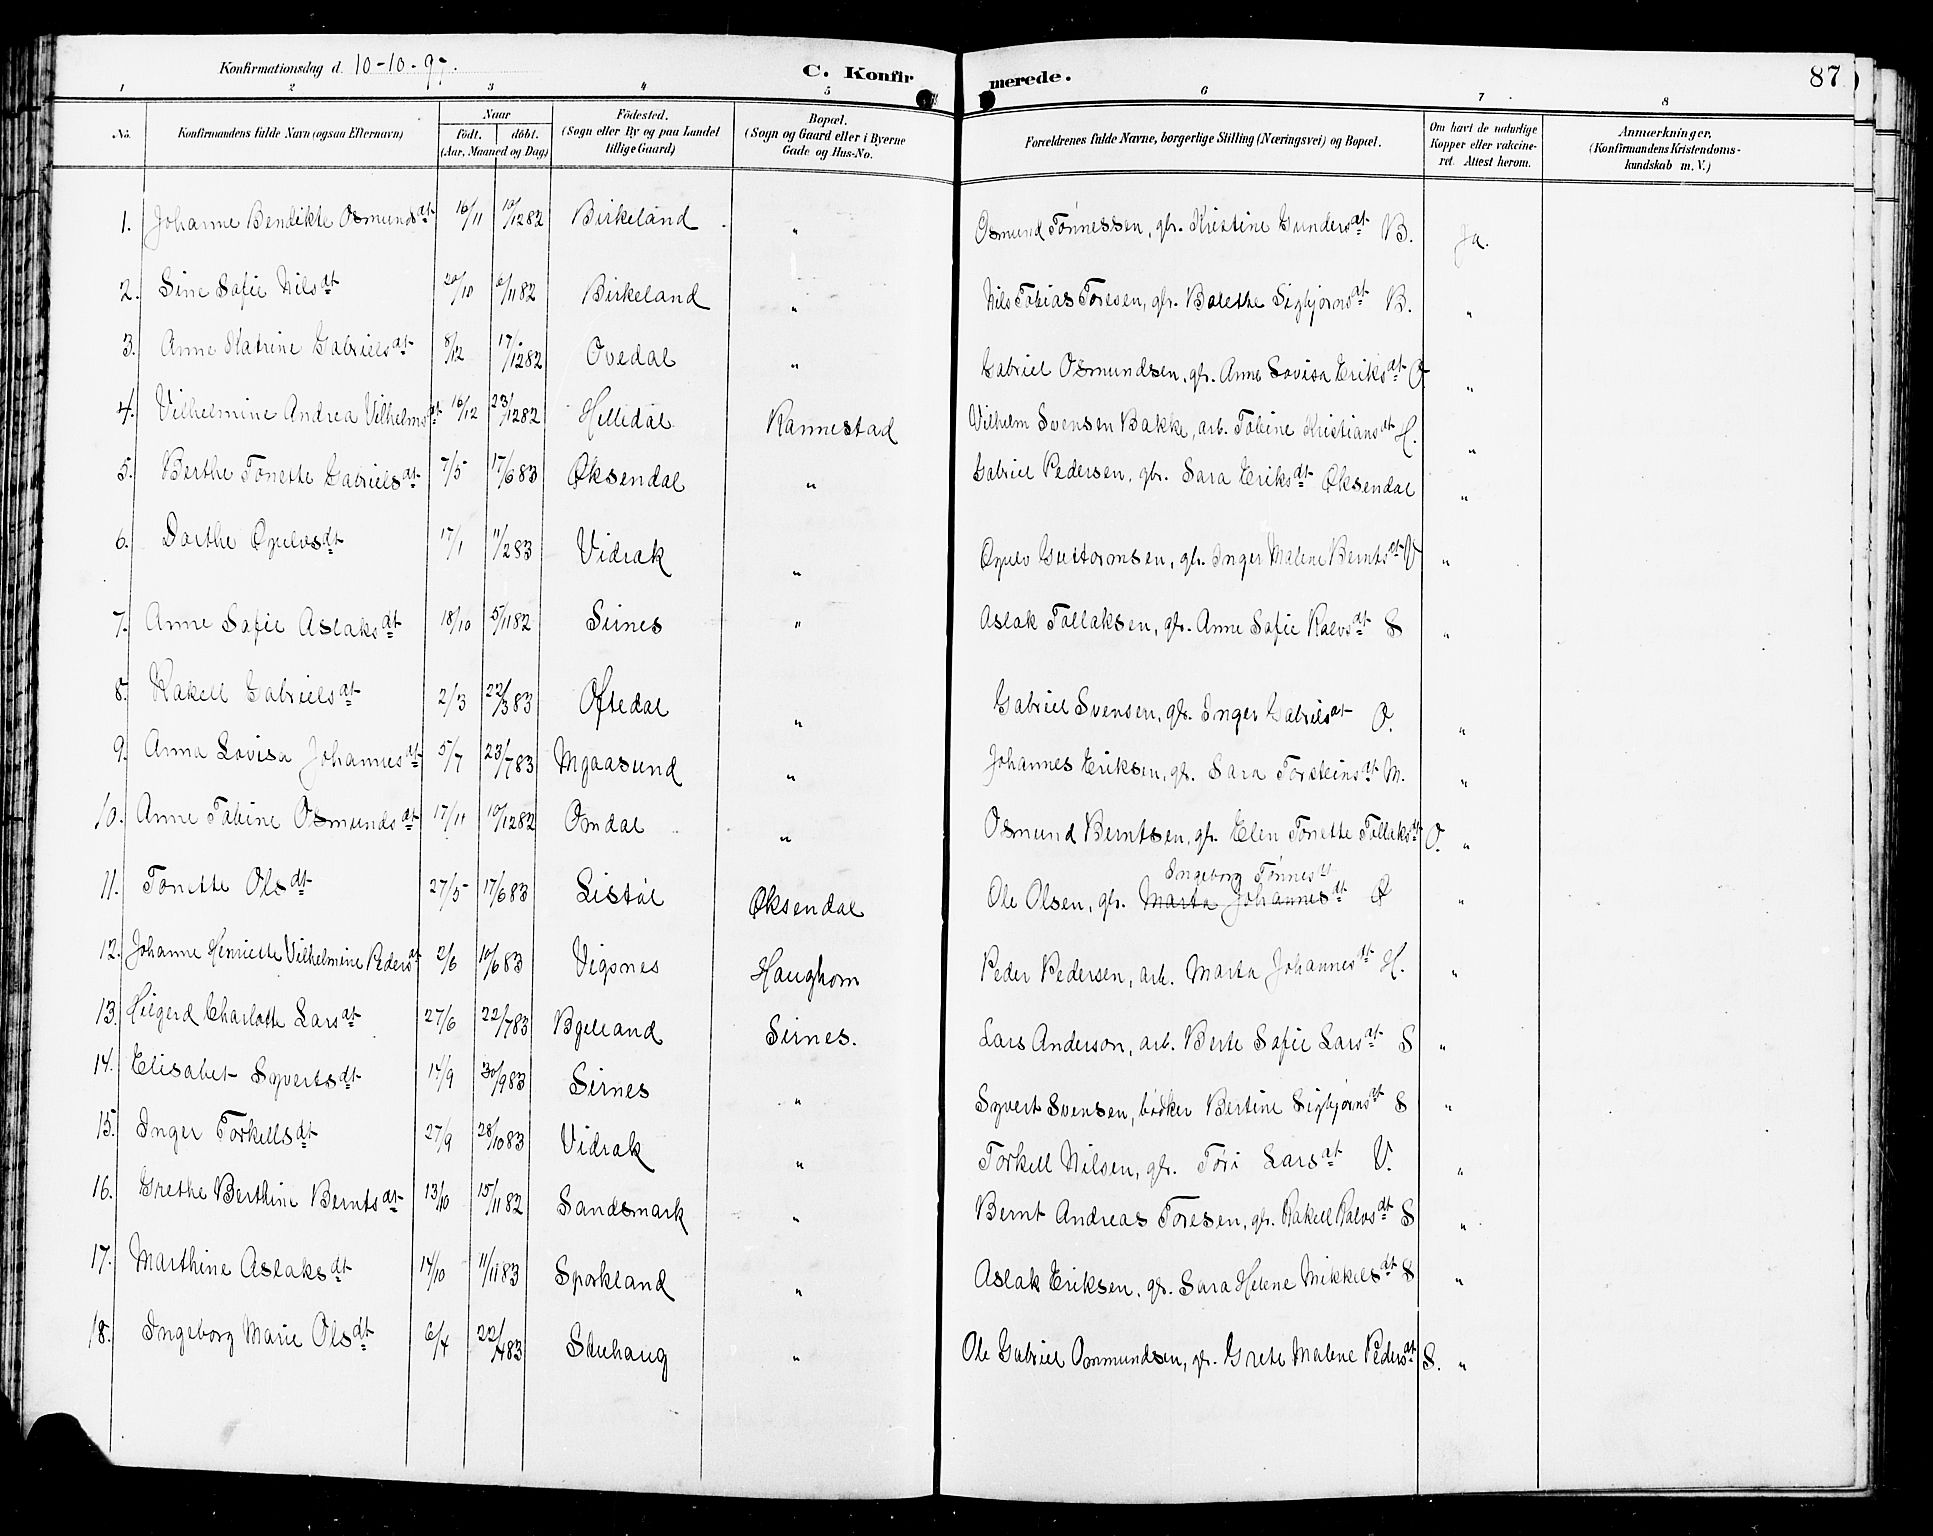 Konfirmationsdag d. 10-10-97.
C. Konfirmerede.
87
1 2 3 4 5 6 7 8
No.
Konfirmandens fulde Navn (ogsaa Efternavn)
Naar
födt. döbt.
(Aar, Maaned og Dag)
Födested.
(Sogn eller By og paa Landet
tillige Gaard)
Bopæl.
(Sogn og Gaard eller i Byerne
Gade og Hus-No.
Forældrenes fulde Navne, borgerlige Stilling (Næringsvei) og Bopæl.
Om havt de naturlige
Kopper eller vakcine-
ret. Attest herom.
Anmærkninger,
(Konfirmandens Kristendoms-
kundskab m. V.)
1. Johanne Bendikte Osmundsdt 16/11 10/1282 Birkeland " Osmund Tønnessen, gbr. Kristine Gundersdt B. Ja.
2. Sine Sofie Nilsdt 20/10 6/1182 Birkeland " Nils Tobias Toresen, gbr. Bolethe Sigbjørnsdt B. "
3. Anne Katrine Gabrielsdt 8/12 17/1282 Ovedal " Gabriel Osmundsen, gbr. Anne Lovisa Eriksdt O "
4. Vilhelmine Andrea Vilhelmsdt 16/12 23/1282 Helledal Rannestad Vilhelm Svensen Bakke, arb. Tobine Kristiansdt H. "
5. Berthe Tonette Gabrielsdt 7/5 17/683 Øksendal " Gabriel Pedersen, gbr. Sara Eriksdt Øksendal "
6. Dorthe Øyulvsdt 17/1 11/283 Vidrak " Øyulv Guttormsen, gbr. Inger Malene Berntsdt V "
7. Anne Sofie Aslaksdt 18/10 5/1182 Sirnes " Aslak Tollaksen, gbr. Anne Sofie Kalvsdt S "
8. Rakell Gabrielsdt 2/3 22/383 Oftedal " Gabriel Svensen, gbr. Inger Gabrielsdt O. "
9. Anna Lovisa Johannesdt 5/7 23/783 Mgaasund " Johannes Eriksen, gbr. Sara Torsteinsdt M. "
10. Anne Tobine Osmundsdt 17/11 10/1282 Omdal " Osmund Berntsen, gbr. Elen Tonette Tollaksdt O. "
Ingeborg Tønnesdt
11. Tonette Olsdt 27/5 17/683 Listøl Øksendal Ole Olsen, gbr. Marta Johannesdt Ø "
12. Johanne Henriette Vilhelmine Pedersdt 2/6 10/683 Vigsnes Haughom Peder Pedersen, arb. Marta Johannesdt H. "
13. Hilgerd Charlotte Larsdt 27/6 22/783 Bgelland Sirnes. Lars Anderson, arb. Berte Sofie Larsdt S "
14. Elisabet Syvertsdt 14/9 30/983 Sirnes " Syvert Svensen, bødker Bertine Sigbjørnsdt S "
15. Inger Torkellsdt 27/9 28/1083 Vidrak " Torkell Nilsen, gbr. Tøri Larsdt V. "
16. Grethe Berthine Berntsdt 13/10 15/1182 Sandsmark " Bernt Andreas Toresen, gbr. Rakell Kalvsdt S "
17. Marthine Aslaksdt 14/10 11/1183 Sporkland " Aslak Eriksen, gbr. Sara Helene Mikkelsdt S "
18. Ingeborg Marie Olsdt 6/4 22/483 " Ole Gabriel Ommundsen, gbr. Grete Malene Pedersdt S. "